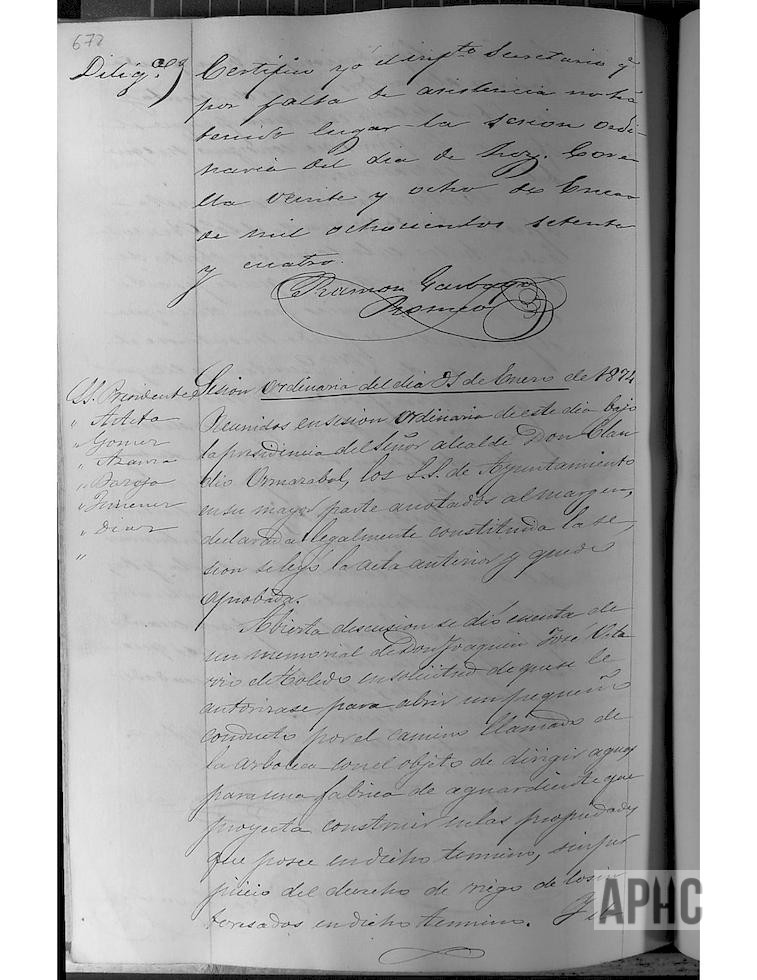 672
Diligª
Certifico yo el infrº Secretario q
por falta de asistencia no ha
tenido lugar la sesion ordi-
naria del dia de hoy. Core-
lla veinte y ocho de Enero
de mil ochocientos setenta
y cuatro.
Ramon Garbayo
Romeo
Sesion ordinaria del dia 31 de Enero de 1874
SS. Presidente
" Arteta
" Gomez
"
"
" Jimenez
" Diaz
"
Reunidos en sesion ordinaria de este dia bajo
la presidencia del Señor alcalde Don Clau
dio Ormazabal, los S.S. de Ayuntamiento
en su mayor parte anotados al margen,
declarada legalmente constituida la se
sion se leyó la acta anterior y quedó
aprobada.
Abierta discusion se dió cuenta de
un memorial de Don Joaquin José
de Toledo en solicitud de que se le
autorizase para abrir un pequeño
conducto por el camino llamado de
la con el objeto de dirigir aguas
para una fabrica de aguardiente que
proyecta construir en las propiedades
que posee en dicho termino, sin per
juicio del derecho de riego de los in
teresados en dicho termino.
APHC